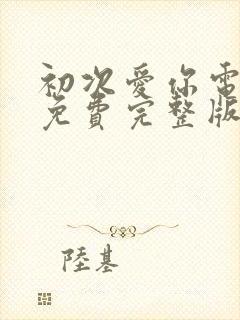 初次愛你電
免費完整版
陸基